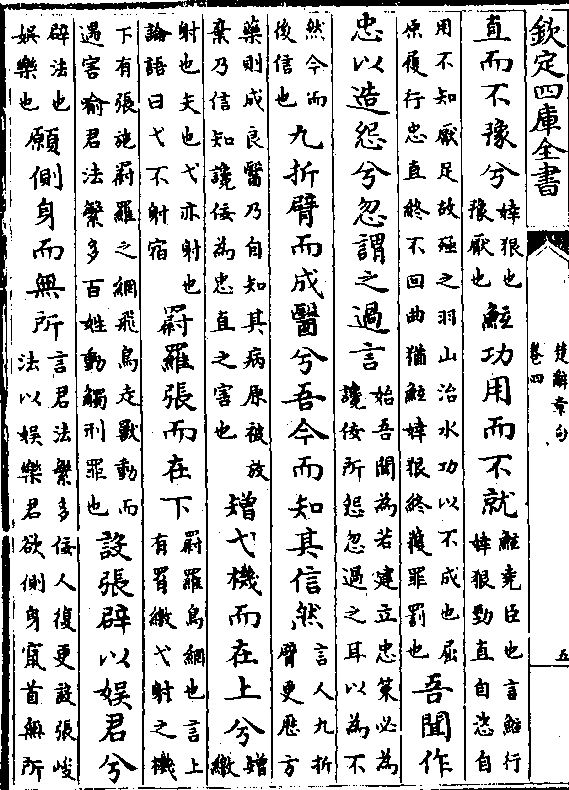 欽定四庫全書
楚辭章句
卷四
五
直而不豫兮婞狠也豫厭也鮌功用而不就鮌堯臣也言鮌行婞狠勁直自恣自
用不知厭足故殛之羽山治水功以不成也屈原履行忠直終不回曲猶鮌婞狠終獲罪罰也吾聞作
忠以造怨兮忽謂之過言始吾聞為若建立忠策必為讒佞所怨忽過之耳以為不
然今而後信也九折臂而成醫兮吾今而知其信然言人九折臂更歷方
藥則成良醫乃自知其病原被放棄乃信知讒佞為忠直之害也矰弋機而在上兮矰繳
射也矢也弋亦射也論語曰弋不射宿罻羅張而在下罻羅鳥網也言上有罥繳弋射之機
下有張施罻羅之網飛鳥走獸動而遇害喻君法繁多百姓動觸刑罪也設張辟以娛君兮
辟法也娛樂也願側身而無所言君法繁多佞人復更設張峻法以娛樂君欲側身竄首無所